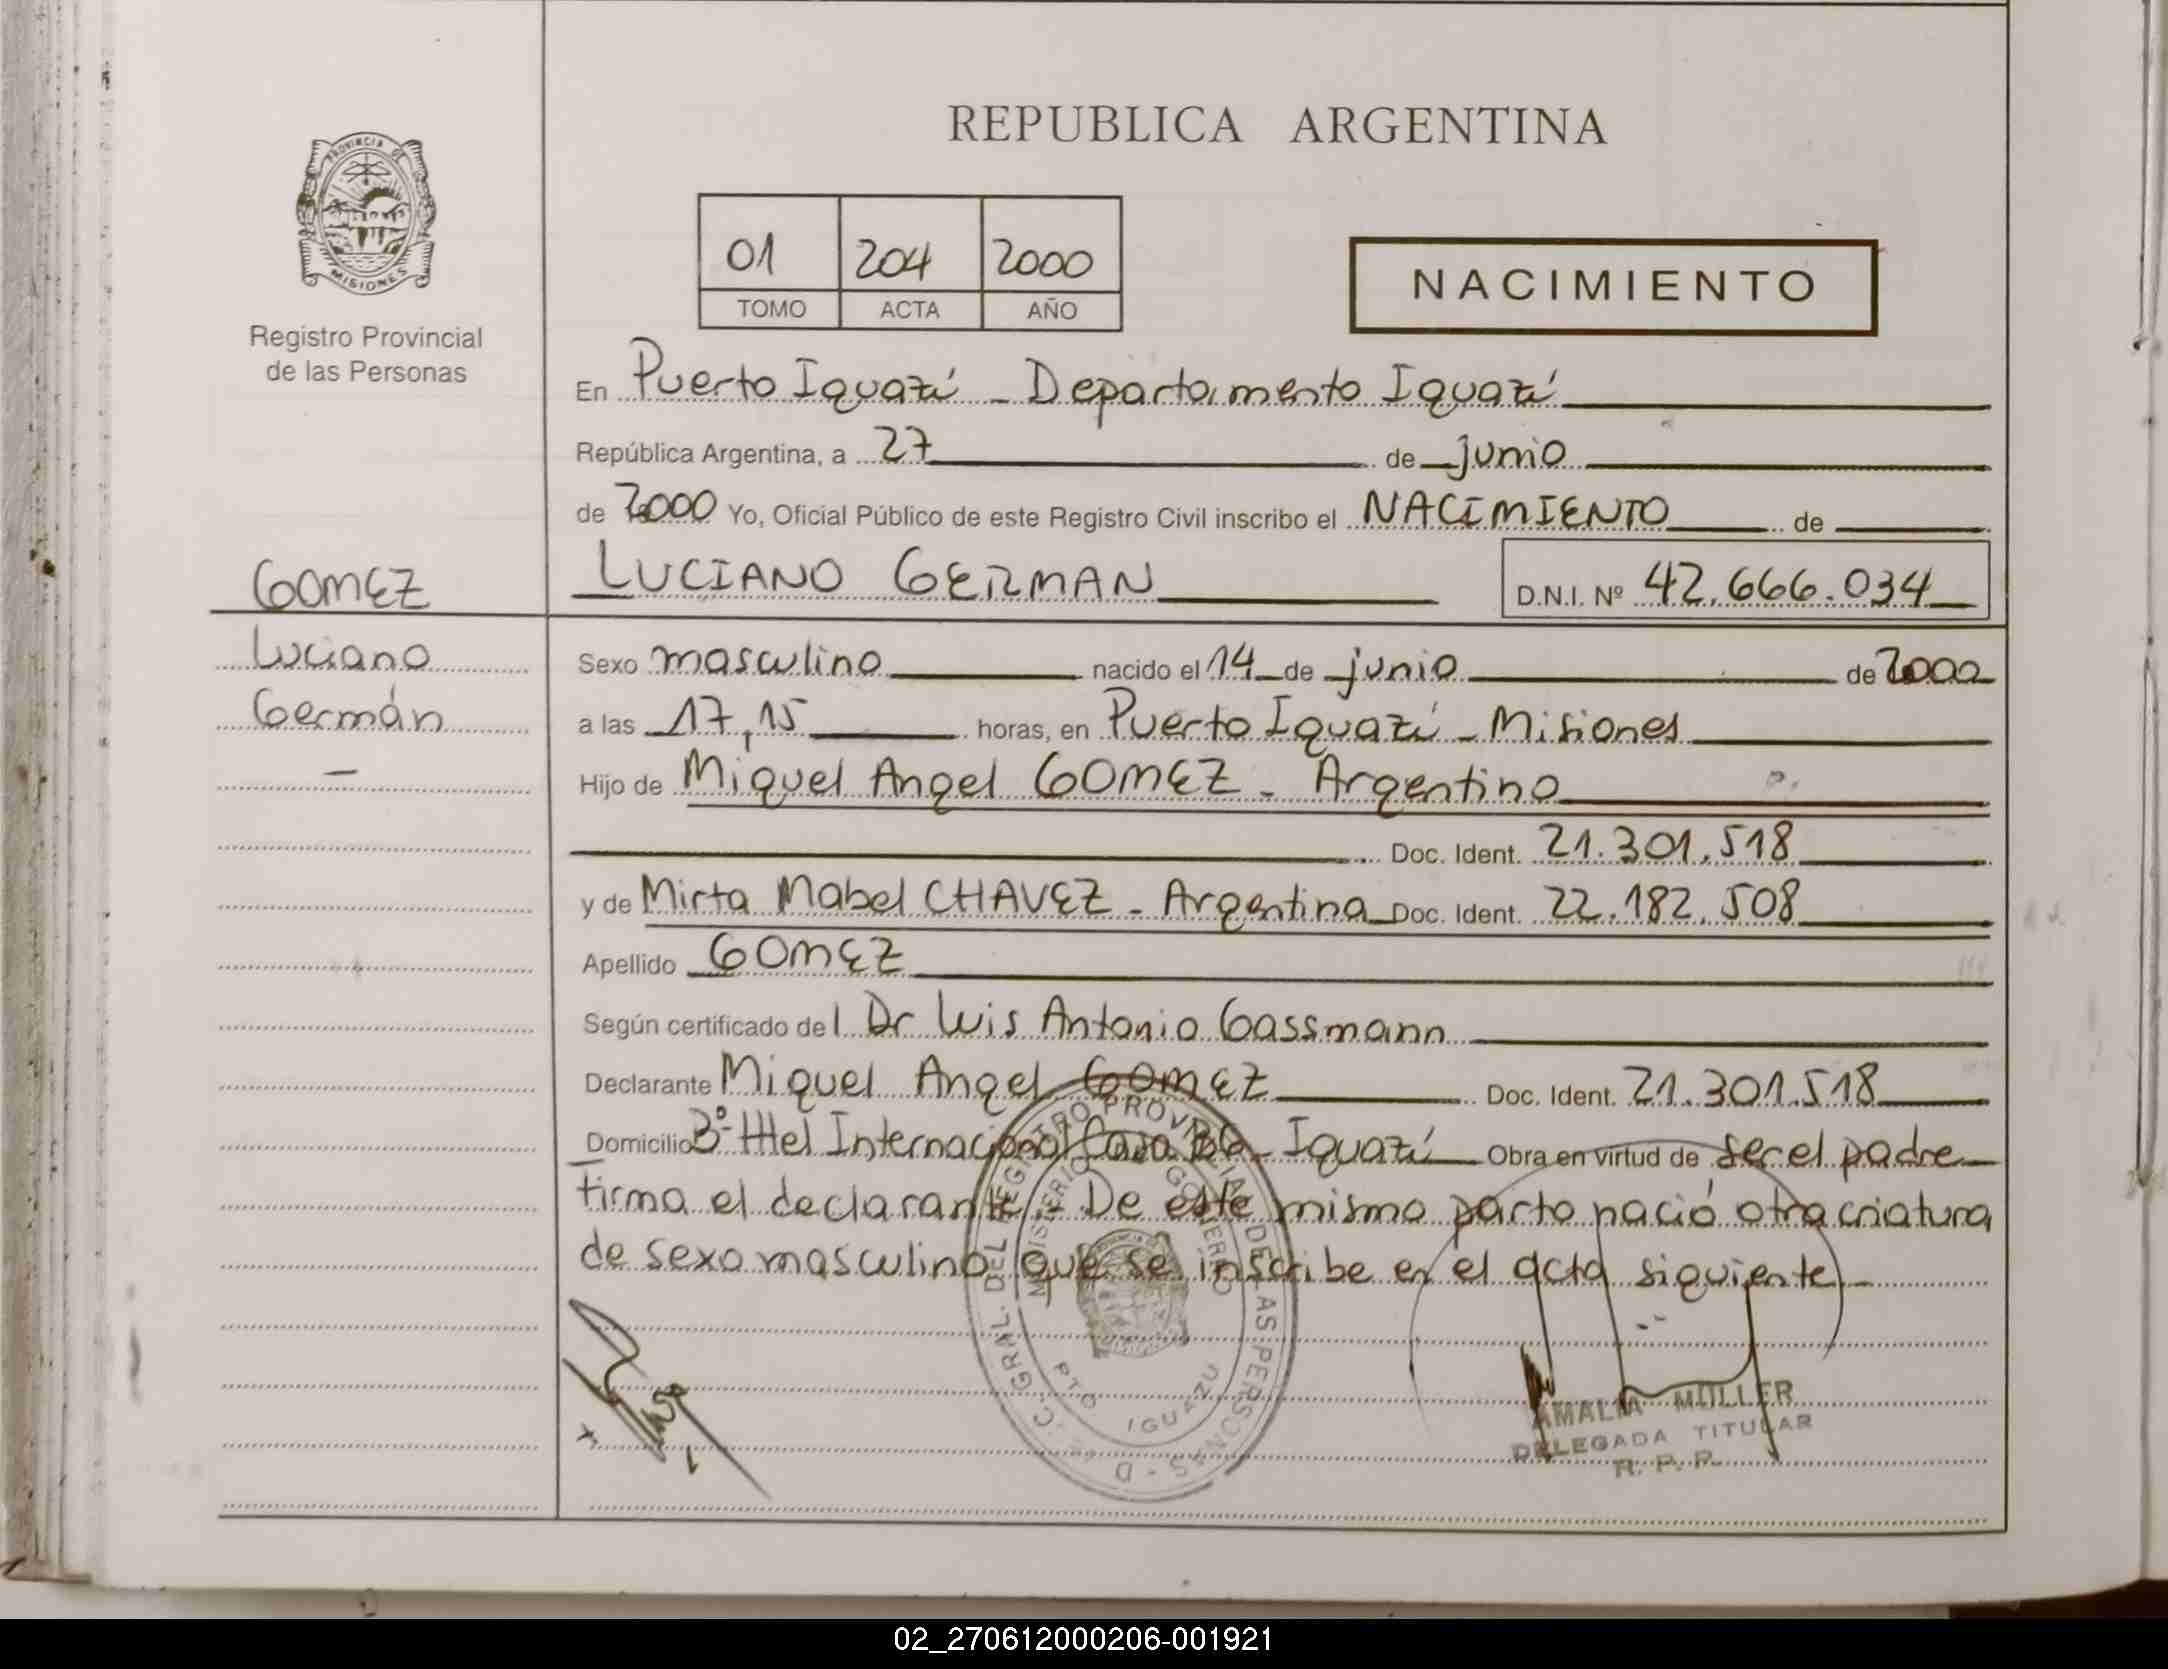 REPUBLICA ARGENTINA
PROVINCIA DE
MISIONES
Registro Provincial
de las Personas
01 204 2000
TOMO ACTA AÑO
NACIMIENTO
En Puerto Iguazú - Departamento Iguazú
República Argentina, a 27 de junio
de 2000 Yo, Oficial Público de este Registro Civil inscribo el NACIMIENTO de
GOMEZ
LUCIANO GERMAN D.N.I. Nº 42.666.034
Luciano
Germán
Sexo masculino nacido el 14 de junio de 2000
a las 17,15 horas, en Puerto Iguazú - Misiones
Hijo de Miguel Angel GOMEZ - Argentino
Doc. Ident. 21.301.518
y de Mirta Mabel CHAVEZ - Argentina Doc. Ident. 22.182.508
Apellido GOMEZ
Según certificado del Dr Luis Antonio Gassmann
Declarante Miguel Angel GOMEZ Doc. Ident. 21.301.518
Domicilio Bº Internacional Iguazú Obra en virtud de ser el padre
firma el declarante.- De este mismo parto nació otra criatura
de sexo masculino que se inscribe en el acta siguiente.-
GRAL. DEL REGISTRO PROVINCIAL DE LAS PERSONAS
MINISTERIO GOBIERNO
PTO. IGUAZU
AMALIA MULLER
DELEGADA TITULAR
R. P. P.
02_270612000206-001921